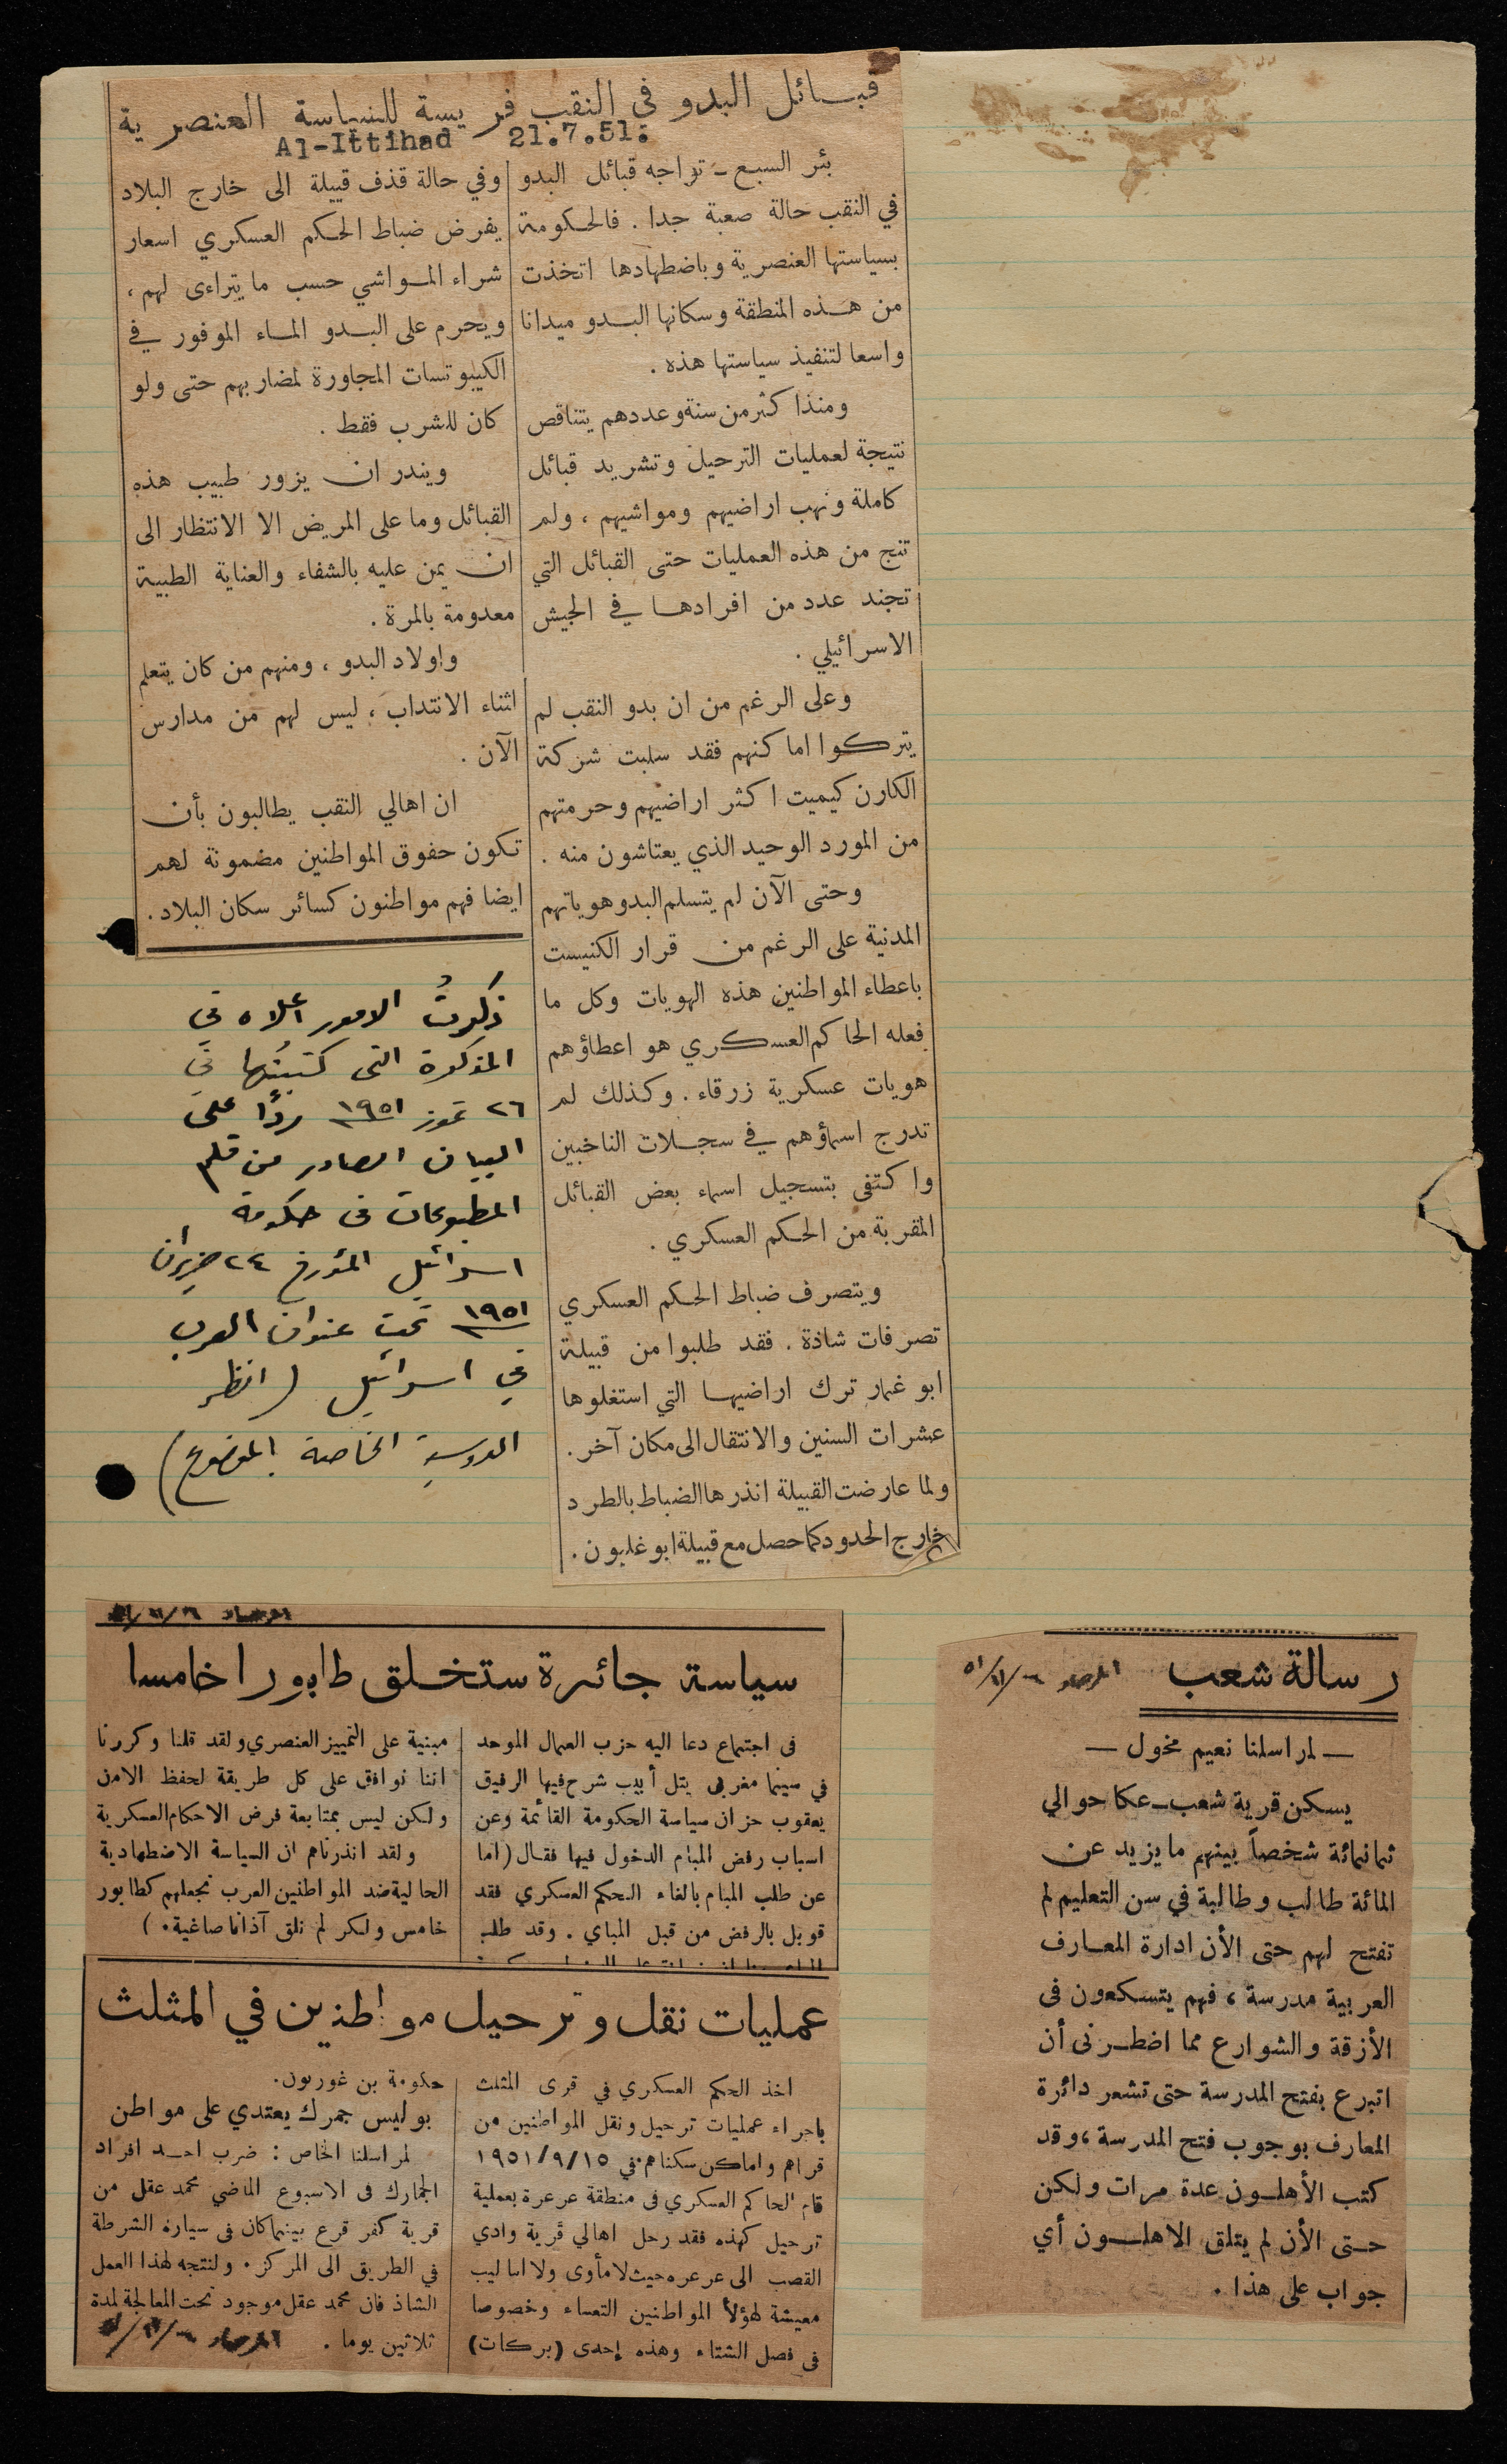 قبائل البدو في النقب فريسة للسياسة العنصرية
Al-Ittihad 21.7.51.
بئر السبع - تواجه قبائل البدو
في النقب حالة صعبة جدا . فالحكومة
بسياستها العنصرية وباضطهادها اتخذت
من هذه المنطقة وسكانها البدو ميدانا
واسعا لتنفيذ سياستها هذه .
ومنذ اكثر من سنة وعددهم يتناقص
نتيجة لعمليات الترحيل وتشريد قبائل
كاملة ونهب اراضيهم ومواشيهم ، ولم
تنج من هذه العمليات حتى القبائل التي
تجند عدد من افرادها في الجيش
الاسرائيلي .
وعلى الرغم من ان بدو النقب لم
يتركوا اماكنهم فقد سلبت شركة
الكارن كيميت اكثر اراضيهم وحرمتهم
من المورد الوحيد الذي يعتاشون منه .
وحتى الآن لم يتسلم البدو هوياتهم
المدنية على الرغم من قرار الكنيست
باعطاء المواطنين هذه الهويات وكل ما
فعله الحاكم العسكري هو اعطاؤهم
هويات عسكرية زرقاء . وكذلك لم
تدرج اسماؤهم في سجلات الناخبين
واكتفى بتسجيل اسماء بعض القبائل
المقربة من الحكم العسكري .
ويتصرف ضباط الحكم العسكري
تصرفات شاذة . فقد طلبوا من قبيلة
ابو غمار ترك اراضيها التي استغلوها
عشرات السنين والانتقال الى مكان آخر .
ولما عارضت القبيلة انذرها الضباط بالطرد
خارج الحدود كما حصل مع قبيلة ابو غلبون .
وفي حالة قذف قبيلة الى خارج البلاد
يفرض ضباط الحكم العسكري اسعار
شراء المواشي حسب ما يتراءى لهم ،
ويحرم على البدو الماء الموفور في
الكيبوتسات المجاورة لمضاربهم حتى ولو
كان للشرب فقط .
ويندر ان يزور طبيب هذه
القبائل وما على المريض الا الانتظار الى
ان يمن عليه بالشفاء والعناية الطبية
معدومة بالمرة .
واولاد البدو ، ومنهم من كان يتعلم
اثناء الانتداب ، ليس لهم من مدارس
الآن .
ان اهالي النقب يطالبون بأن
تكون حقوق المواطنين مضمونة لهم
ايضا فهم مواطنون كسائر سكان البلاد .
ذكرتُ الامور اعلاه في
المذكرة التى كتبتُها في
٢٦ تموز ١٩٥١ ردًا على
البيان الصادر من قلم
المطبوعات فى حكومة
اسرائيل المؤرخ ٢٤ حزيران
١٩٥١ تحت عنوان العرب
في اسرائيل (انظر
الدوسية الخاصة بالموضوع)
المرصاد
سياسة جائرة ستخلق طابورا خامسا
فى اجتماع دعا اليه حزب العمال الموحد
في سينما مغربي بتل أبيب شرح فيها الرفيق
يعقوب حزان سياسة الحكومة القائمة وعن
اسباب رفض المبام الدخول فيها فقال (اما
عن طلب المبام بالغاء الحكم العسكري فقد
قوبل بالرفض من قبل المباي . وقد طلب
مبنية على التمييز العنصري ولقد قلنا وكررنا
اننا نوافق على كل طريقة لحفظ الامن
ولكن ليس بمتابعة فرض الاحكام العسكرية
ولقد انذرناهم ان السياسة الاضطهادية
الحالية ضد المواطنين العرب تجعلهم كطابور
خامس ولكن لم نلق آذانا صاغية . )
عمليات نقل وترحيل مواطنين في المثلث
اخذ الحكم العسكري في قرى المثلث
باجراء عمليات ترحيل ونقل المواطنين من
قراهم واماكن سكناهم . في ١٩٥١/٩/١٥
قام الحاكم العسكري فى منطقة عرعرة بعملية
ترحيل كهذه فقد رحل اهالي قرية وادي
القصب الى عرعره حيث لا مأوى ولا اساليب
معيشة لهؤلأ المواطنين التعساء وخصوصا
فى فصل الشتاء وهذه إحدى (بركات)
حكومة بن غوريون.
بوليس جمرك يعتدي على مواطن
لمراسلنا الخاص : ضرب احد افراد
الجمارك فى الاسبوع الماضي محمد عقل من
قرية كفر قرع بينما كان فى سيارة الشرطة
في الطريق الى المركز . ولنتجه لهذا العمل
الشاذ فان محمد عقل موجود تحت المعالجة لمدة
ثلاثين يوما . المرصاد
رسالة شعب المرصاد
— لمراسلنا نعيم مخول —
يسكن قرية شعب - عكا حوالي
ثمانمائة شخصاً بينهم ما يزيد عن
المائة طالب وطالبة في سن التعليم لم
تفتح لهم حتى الأن ادارة المعارف
العربية مدرسة ، فهم يتسكعون فى
الأزقة والشوارع مما اضطرنى أن
اتبرع بفتح المدرسة حتى تشعر دائرة
المعارف بوجوب فتح المدرسة ، وقد
كتب الأهلون عدة مرات ولكن
حتى الأن لم يتلق الاهلون أي
جواب على هذا .